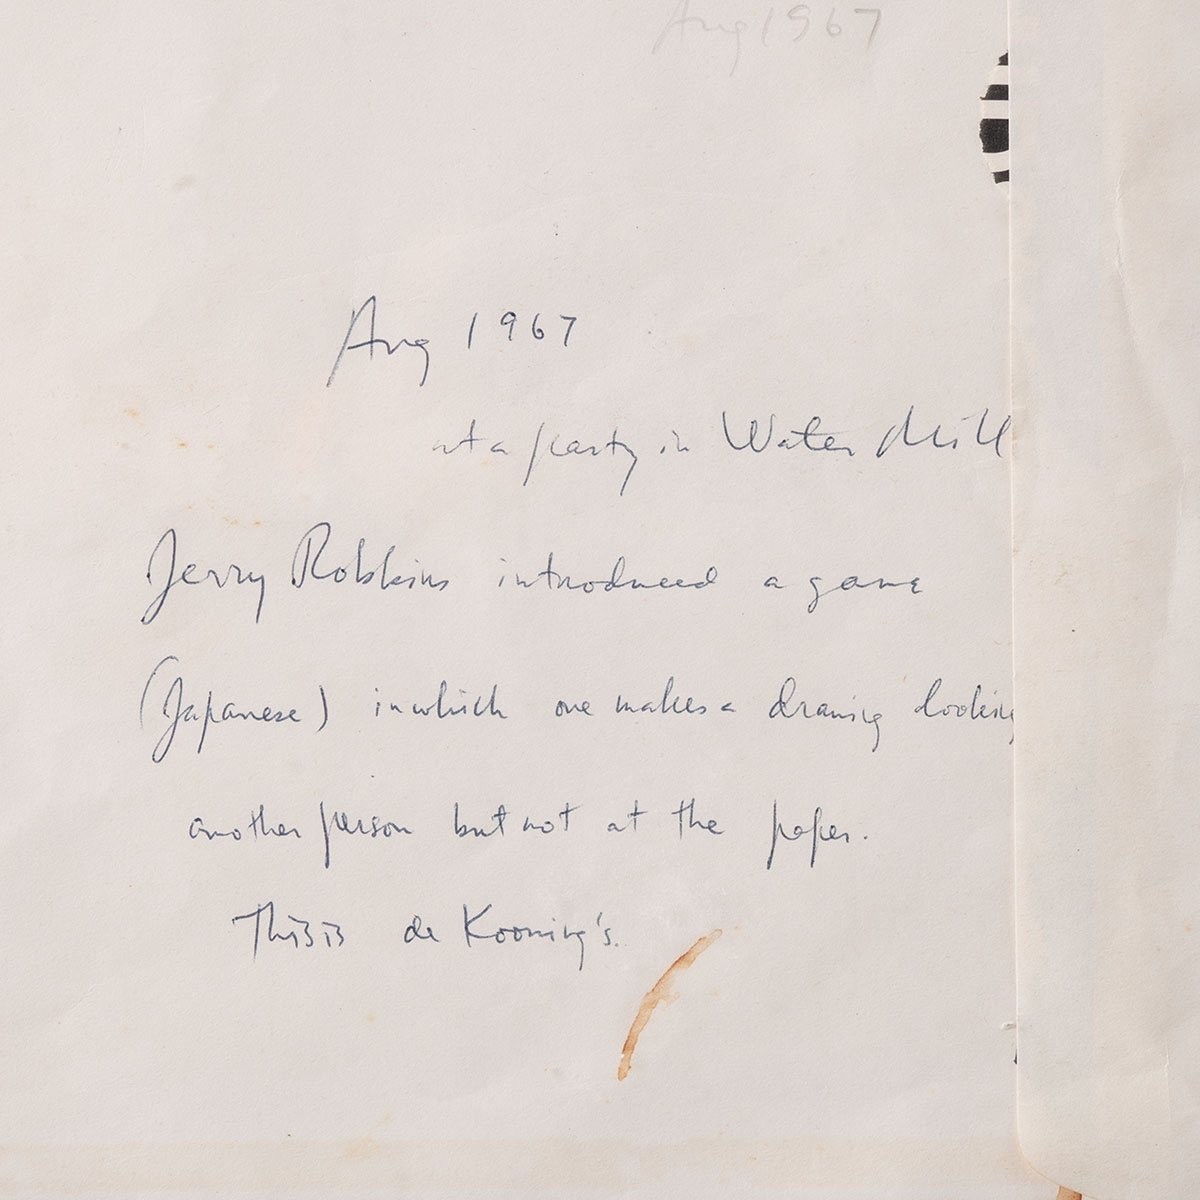 Aug 1967
Aug 1967
at a party in Water Mill
Jerry Robbins introduced a game
(Japanese) in which one makes a drawing looking
another person but not at the paper.
This is de Kooning's.